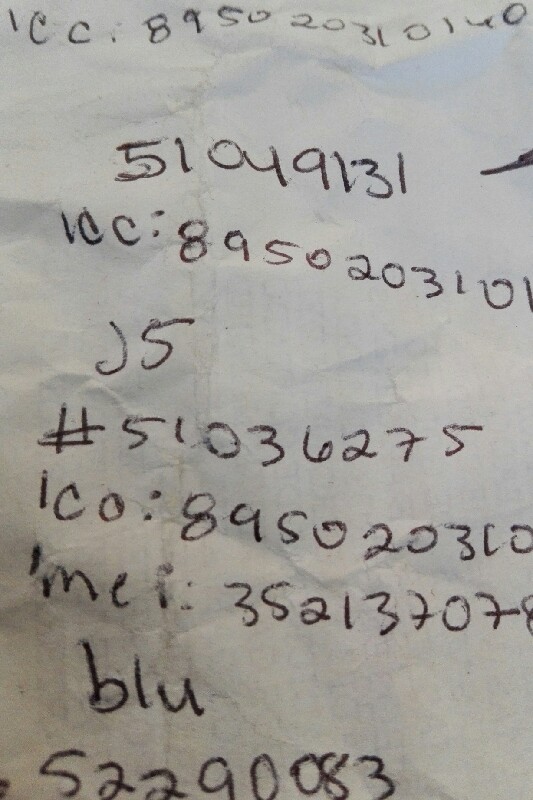 icc: 895020310140
51049131
icc: 8950203101
J5
#51036275
ico: 895020310
imei: 352137078
blu
52290083